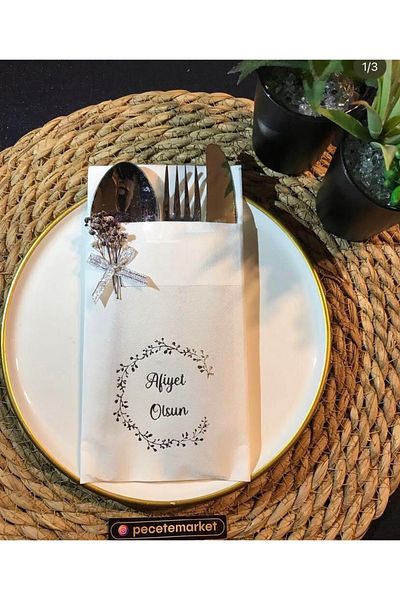 1/3
Afiyet
Olsun
pecetemarket